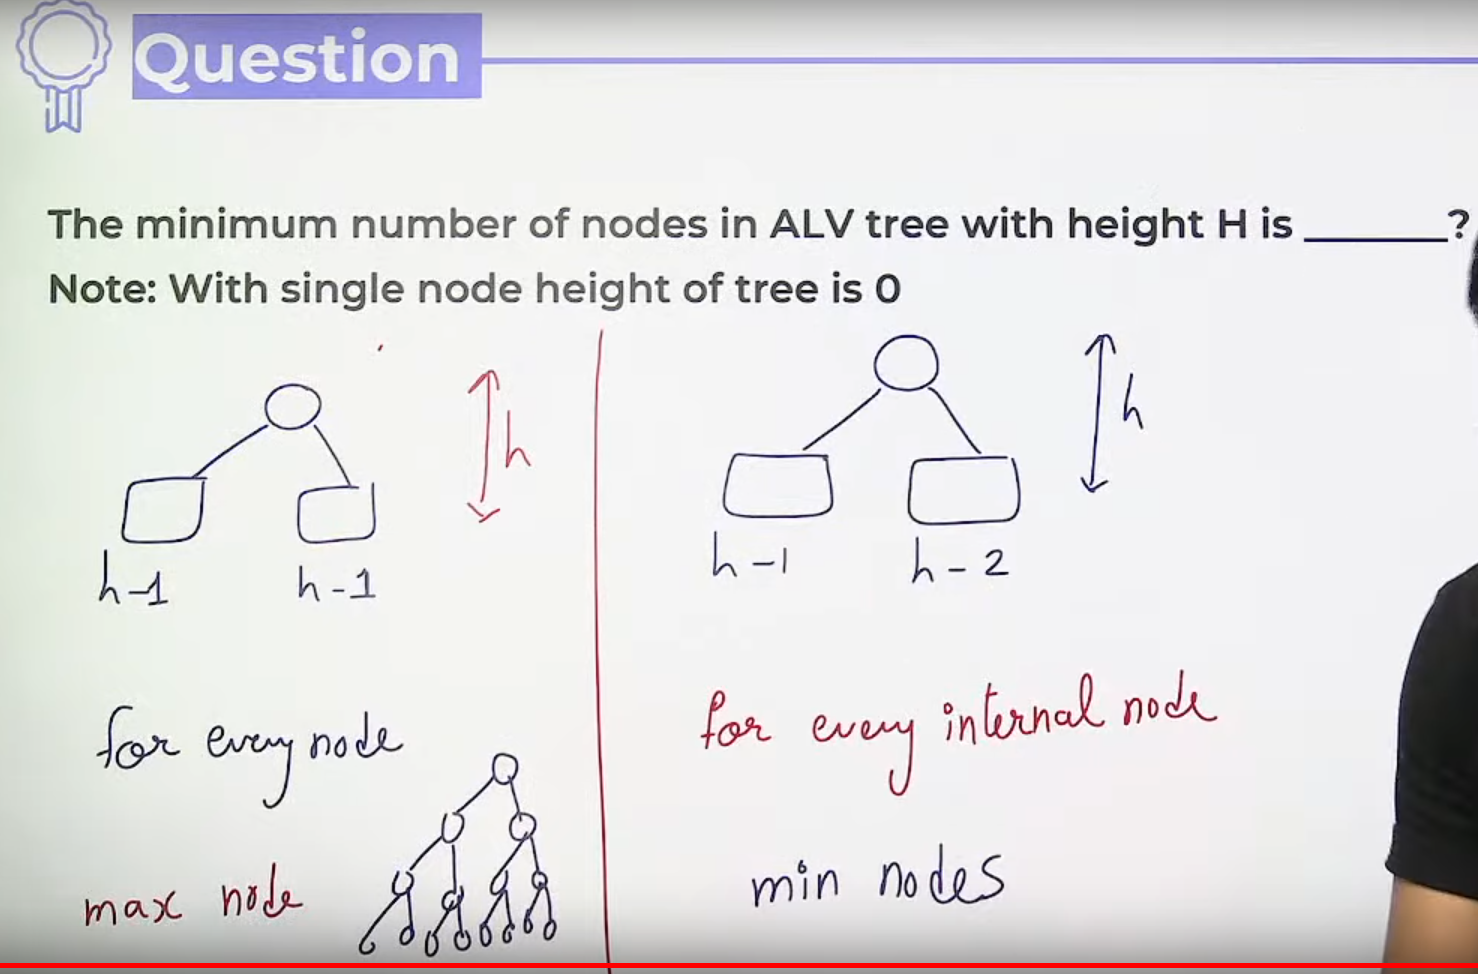 Question
The minimum number of nodes in ALV tree with height H is ______?
Note: With single node height of tree is 0
h
h-1
h-1
for every node
max node
h
h-1
h-2
for every internal node
min nodes